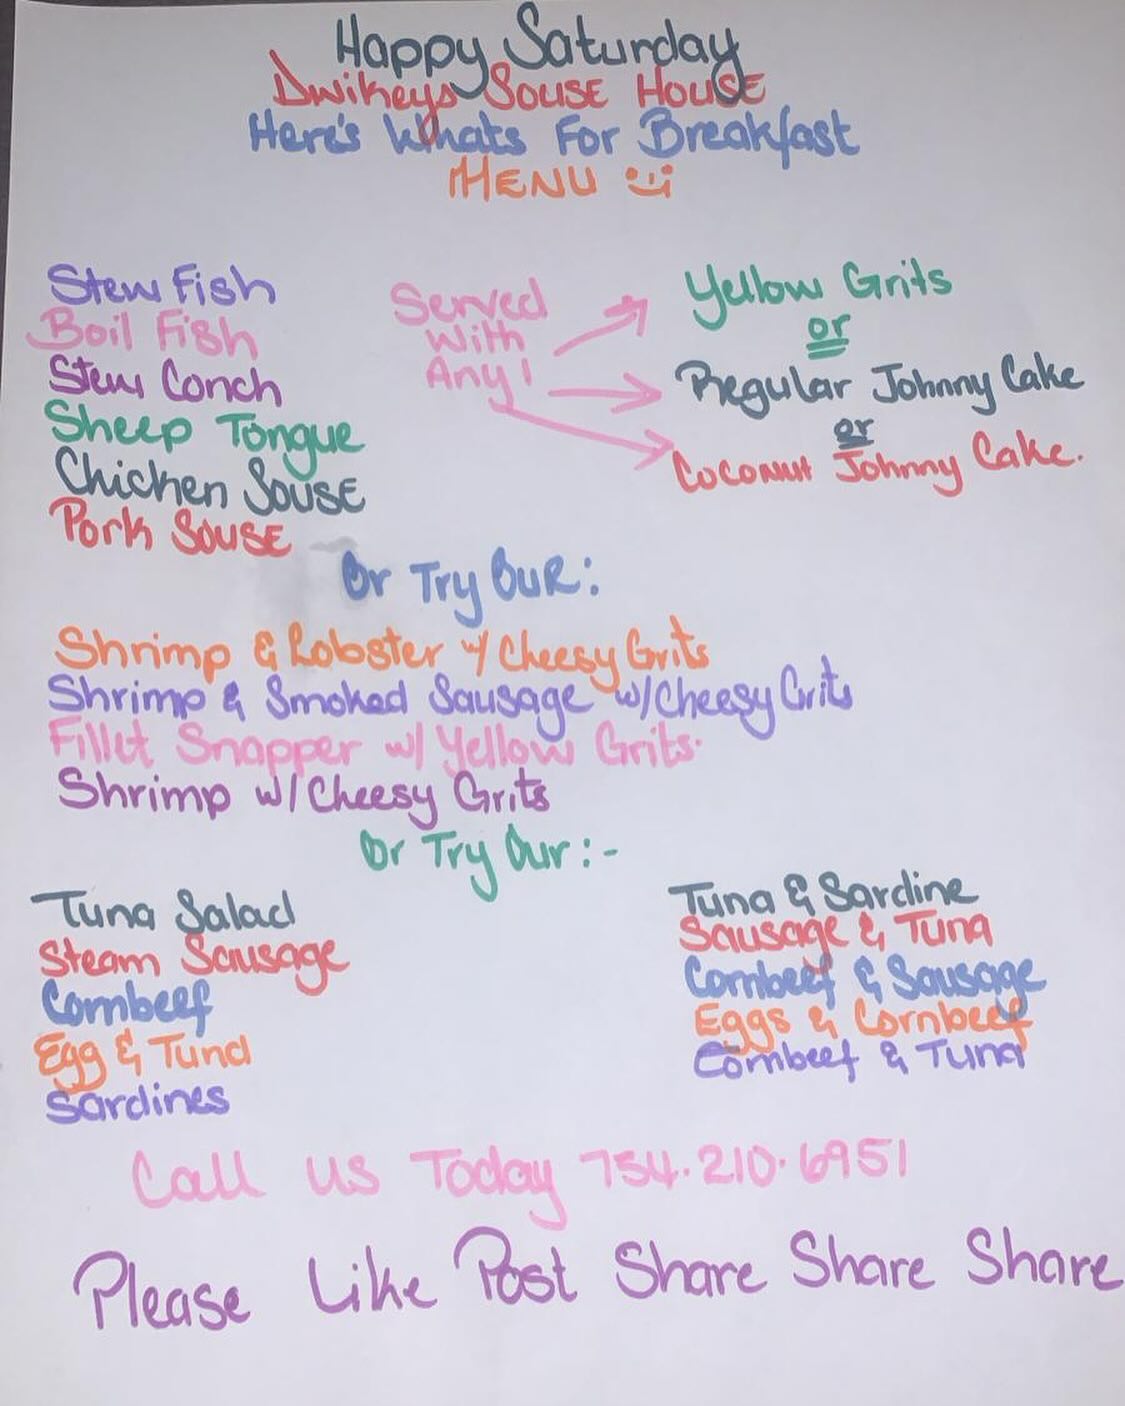 Happy Saturday
Dwikeys Souse House
Here's Whats For Breakfast
MENU
Stew Fish
Boil Fish
Stew Conch
Sheep Tongue
Chicken Souse
Pork Souse
Served
With
Any!
Yellow Grits
or
Regular Johnny Cake
or
Coconut Johnny Cake.
Or Try Our:
Shrimp & Lobster w/ Cheesy Grits
Shrimp & Smoked Sausage w/Cheesy Grits
Fillet Snapper w/ Yellow Grits.
Shrimp w/Cheesy Grits
Or Try Our:-
Tuna Salad
Steam Sausage
Cornbeef
Egg & Tuna
Sardines
Tuna & Sardine
Sausage & Tuna
Cornbeef & Sausage
Eggs & Cornbeef
Cornbeef & Tuna
Call us Today 754.210.6951
Please Like Post Share Share Share